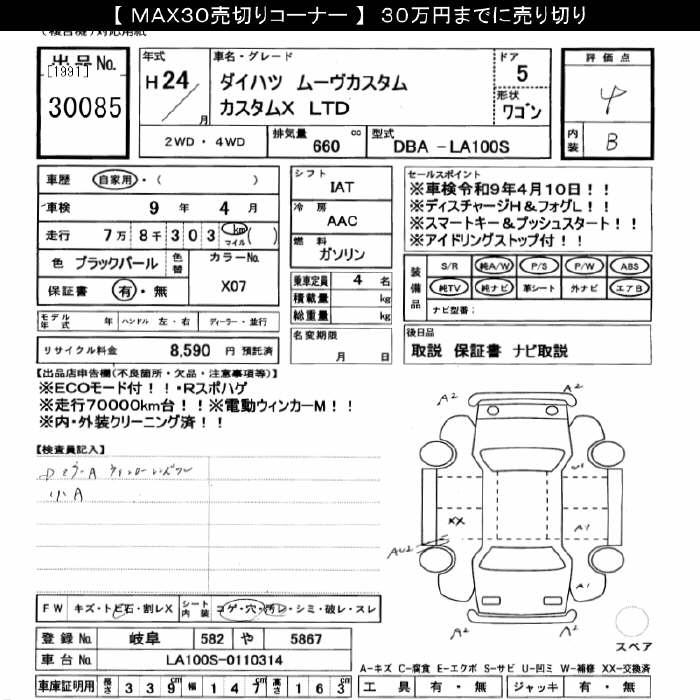 【 MAX30売切りコーナー 】 30万円までに売り切り
出品No.
[1991]
30085
年式
H24/月
車名・グレード
ダイハツ ムーヴカスタム
カスタムX LTD
ドア
5
形状
ワゴン
評価点
4
内装
B
2WD・4WD
排気量 660 cc
型式 DBA -LA100S
車歴 自家用・( )
車検 9年 4月
走行 7万8千303 km マイル ( )
色 ブラックパール
色替
カラーNo.
X07
保証書 有・無
シフト
IAT
冷房
AAC
燃料
ガソリン
乗車定員 4名
積載量 kg
総重量 kg
セールスポイント
※車検令和9年4月10日!!
※ディスチャージH&フォグL!!
※スマートキー&プッシュスタート!!
※アイドリングストップ付!!
装備品
S/R 純A/W P/S P/W ABS
純TV 純ナビ 革シート 外ナビ エアB
ナビ型番:
モデル年式 年 ハンドル 左・右 ディーラー・並行
リサイクル料金 8,590 円 預託済
名変期限
月 日
後日品
取説 保証書 ナビ取説
【出品店申告欄(不良箇所・欠品・注意事項等)】
※ECOモード付!!・Rスポハゲ
※走行70000km台!!※電動ウィンカーM!!
※内・外装クリーニング済!!
【検査員記入】
小A
A2
A2
U1
XX
A1
AU2
A1
A2
A2
スペア
FW キズ・トビ石・割レX
シート内装 コゲ・穴・汚レ・シミ・破レ・スレ
登録No. 岐阜 582 や 5867
車台No. LA100S-0110314
A-キズ C-腐食 E-エクボ S-サビ U-凹ミ W-補修 XX-交換済
車庫証明用 長さ 339 幅 147 高さ 163
工具 有・無 ジャッキ 有・無